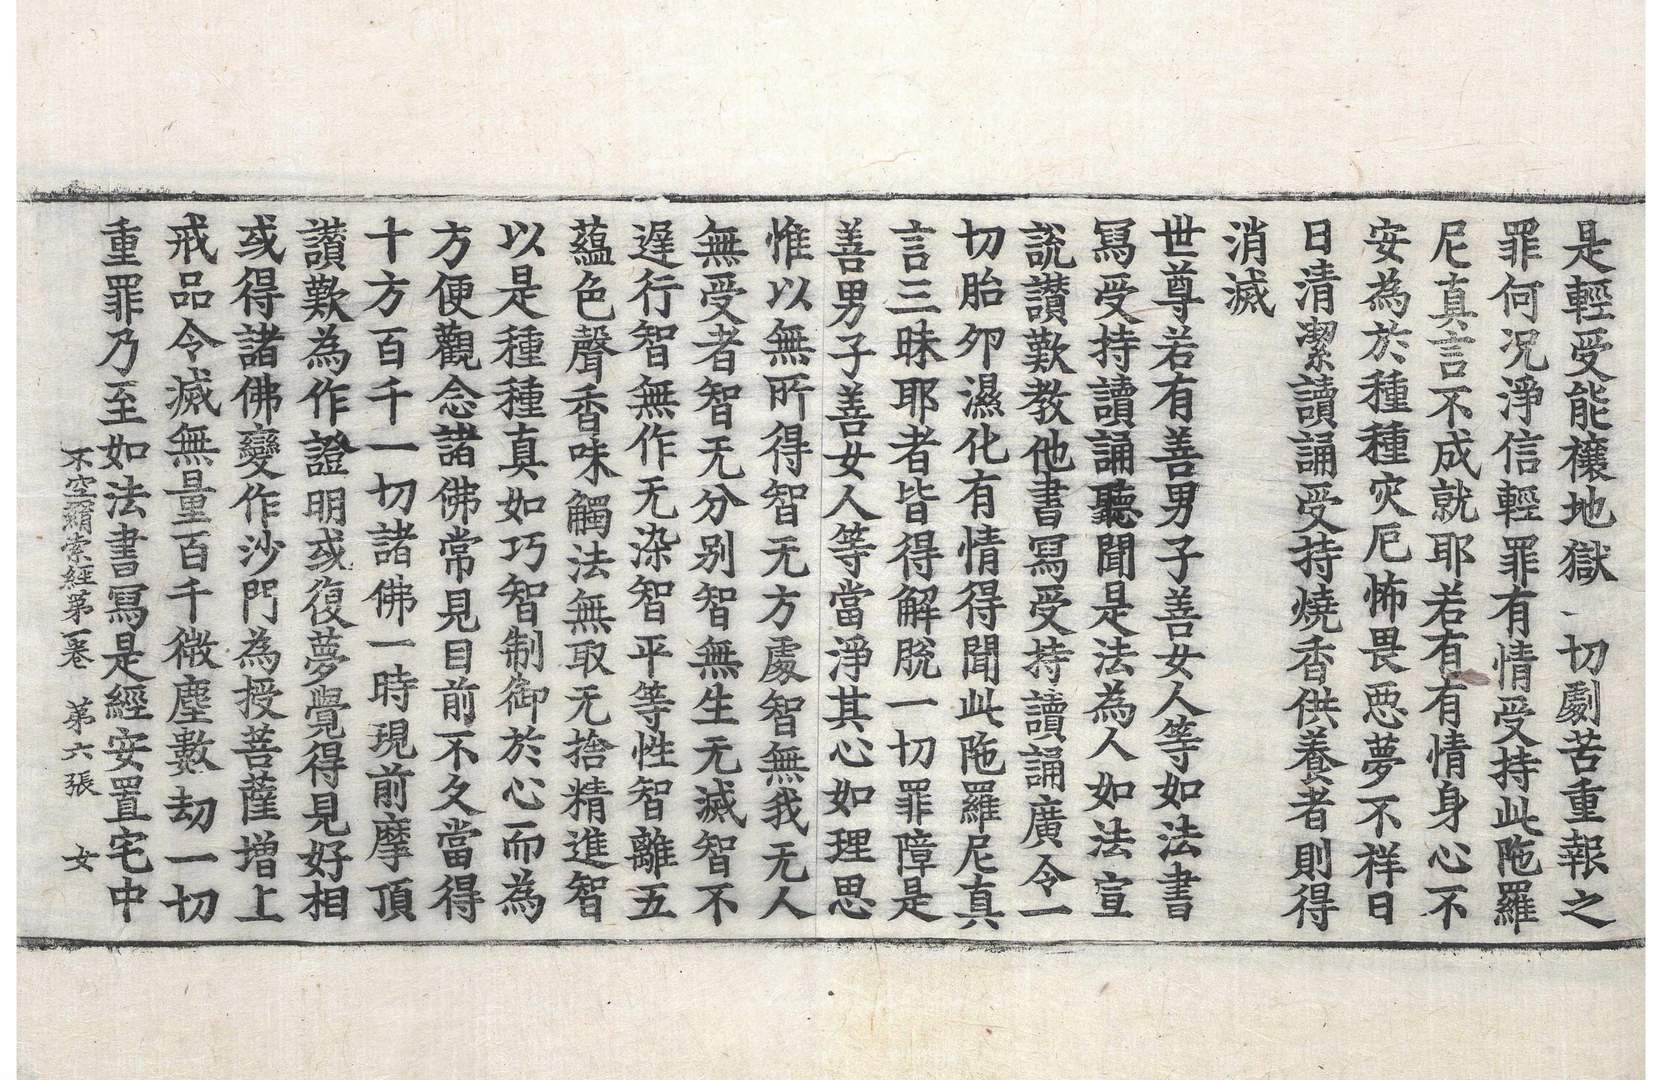 是輕受能禳地獄一切劇苦重報之
罪何況淨信輕罪有情受持此陁羅
尼真言不成就耶若有有情身心不
安為於種種灾厄怖畏惡夢不祥日
日清潔讀誦受持燒香供養者則得
消滅
世尊若有善男子善女人等如法書
寫受持讀誦聽聞是法為人如法宣
說讃歎教他書寫受持讀誦廣令一
切胎夘濕化有情得聞此陁羅尼真
言三昧耶者皆得解脫一切罪障是
善男子善女人等當淨其心如理思
惟以無所得智无方處智無我无人
無受者智无分别智無生无滅智不
遅行智無作无染智平等性智離五
蘊色聲香味觸法無取无捨精進智
以是種種真如巧智制御於心而為
方便觀念諸佛常見目前不久當得
十方百千一切諸佛一時現前摩頂
讃歎為作證明或復夢覺得見好相
或得諸佛變作沙門為授菩薩增上
戒品令滅無量百千微塵數劫一切
重罪乃至如法書寫是經安置宅中
不空羂索經第一卷　第六張　女